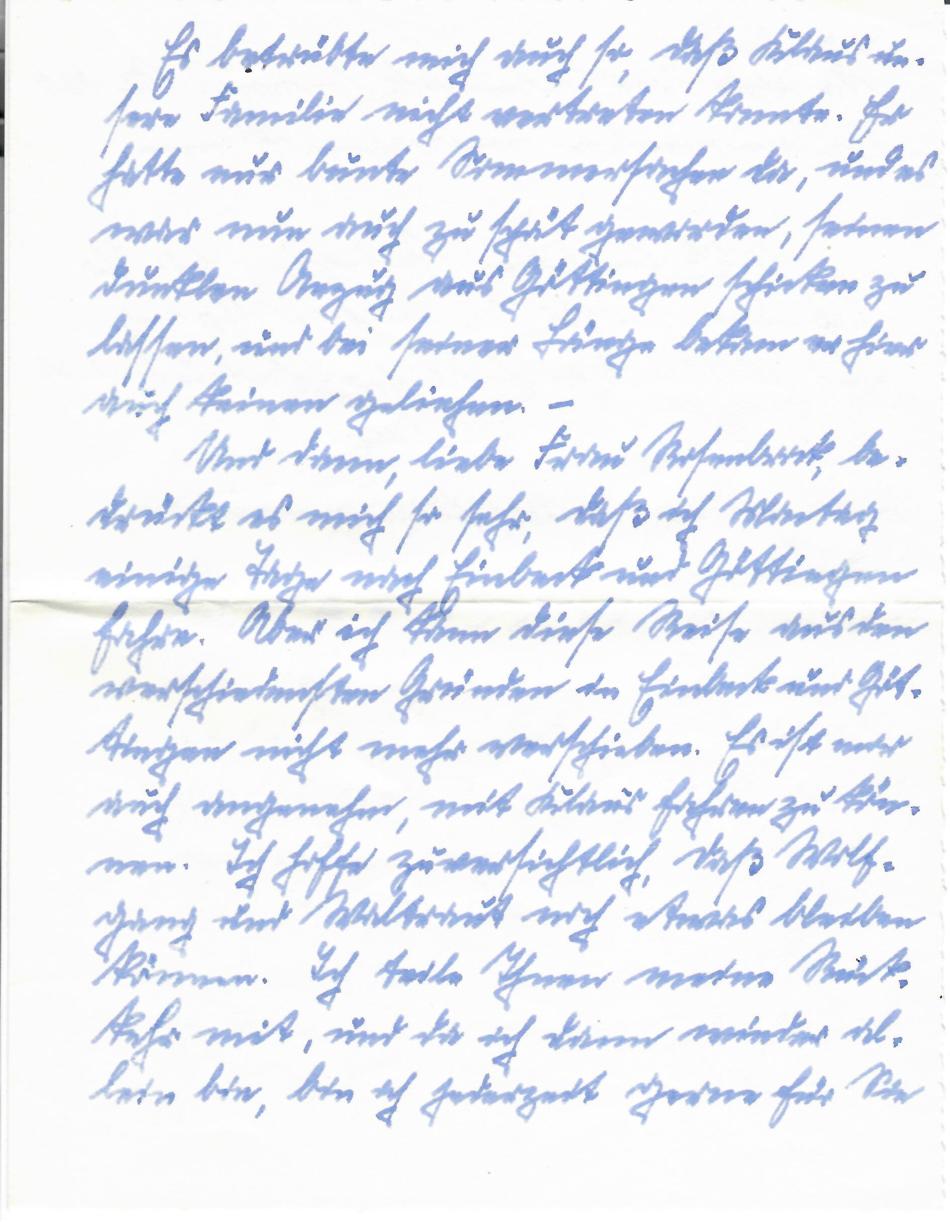 Es betrübte mich auch so, daß Klaus un-
sere Familie nicht vertreten konnte. Er
hatte nur bunte Sommersachen da, und es
war nun auch zu spät geworden, seinen
dunklen Anzug aus Göttingen schicken zu
lassen, und bei seiner Länge bekam er hier
auch keinen geliehen. –
Und dann, liebe Frau Rosenbrock, be-
drückt es mich so sehr, daß ich Montag
einige Tage nach Einbeck und Göttingen
fahre. Aber ich kann diese Reise aus den
verschiedensten Gründen in Einbeck und Göt-
tingen nicht mehr verschieben. Es ist mir
auch angenehm, mit Klaus fahren zu kön-
nen. Ich hoffe zuversichtlich, daß Wolf-
gang und Waltraut noch etwas bleiben
können. Ich teile Ihnen meine Rück-
kehr mit, und da ich dann wieder al-
lein bin, bin ich jederzeit gerne für Sie